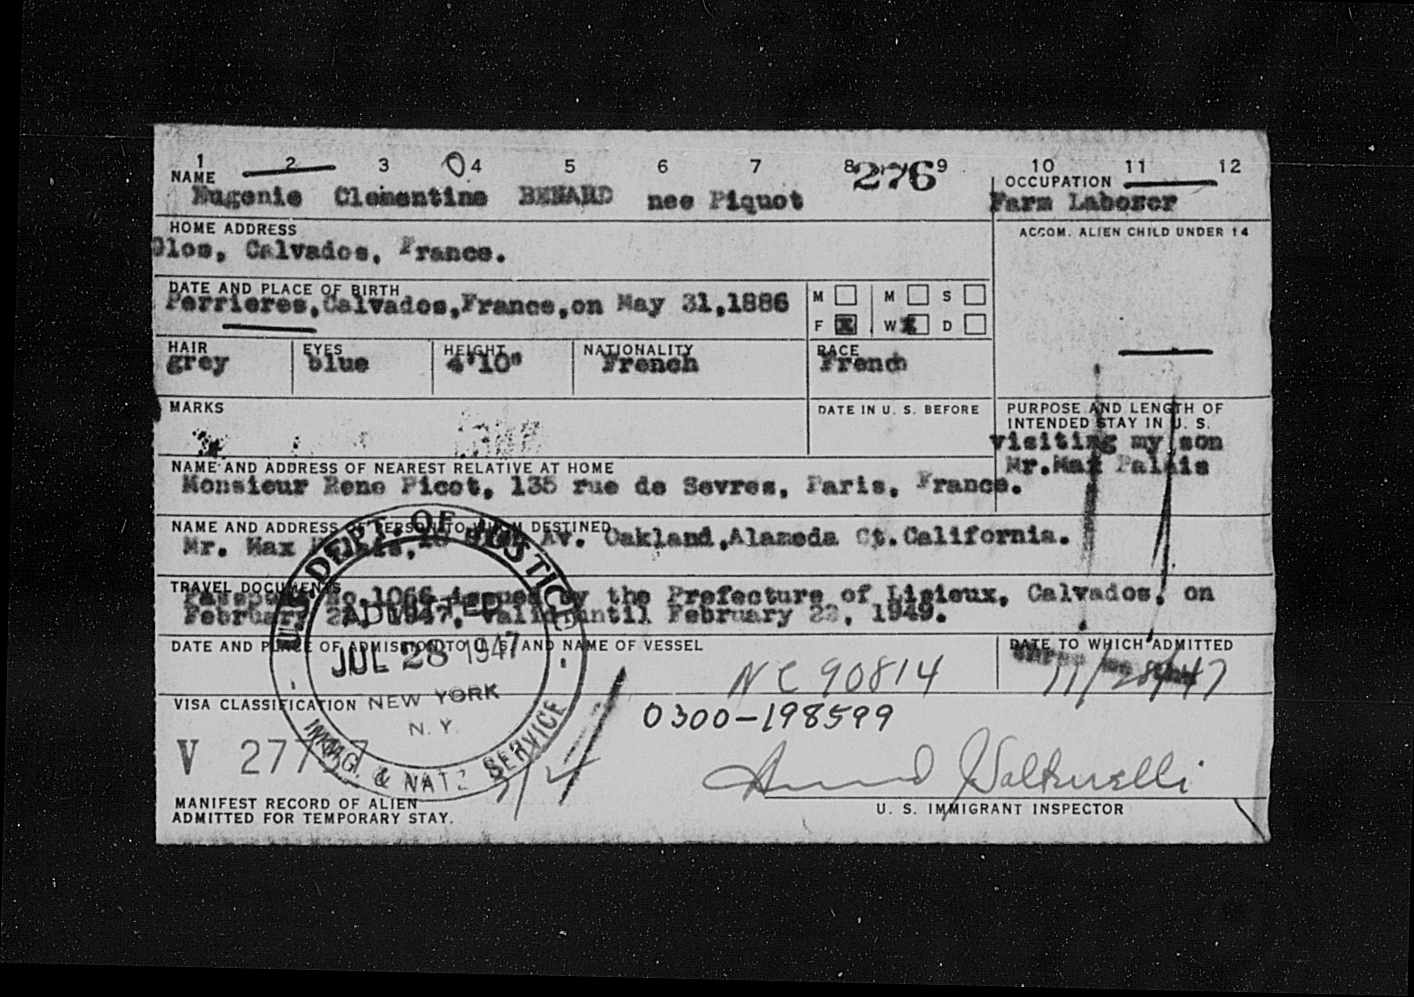 1 2 3 4 5 6 7 8 276 9 10 11 12
NAME
Eugenie Clementine BENARD nee Piquot
OCCUPATION
Farm Laborer
HOME ADDRESS
Glos, Calvados, France.
ACCOM. ALIEN CHILD UNDER 14
DATE AND PLACE OF BIRTH
Perrieres,Calvados,France,on May 31,1886
M M S
F X W X D
HAIR
grey
EYES
blue
HEIGHT
4'10"
NATIONALITY
French
RACE
French
MARKS
DATE IN U. S. BEFORE
PURPOSE AND LENGTH OF
INTENDED STAY IN U. S.
visiting my son
Mr.Max Palais
NAME AND ADDRESS OF NEAREST RELATIVE AT HOME
Monsieur Rene Picot, 135 rue de Sevres, Paris, France.
NAME AND ADDRESS OF PERSON TO WHOM DESTINED
Mr. Max Palais, Av. Oakland,Alameda Ct.California.
TRAVEL DOCUMENTS
Passport No.1066 issued by the Prefecture of Lisieux, Calvados, on
February 1947, valid until February 22, 1949.
DATE AND PLACE OF ADMISSION TO U. S. AND NAME OF VESSEL
NC 90814
DATE TO WHICH ADMITTED
11/28/47
U. S. DEPT. OF JUSTICE
ADMITTED
JUL 28 1947
NEW YORK
N. Y.
IMMIG. & NATZ. SERVICE
VISA CLASSIFICATION
0300-198599
V 277
3/2
MANIFEST RECORD OF ALIEN
ADMITTED FOR TEMPORARY STAY.
U. S. IMMIGRANT INSPECTOR